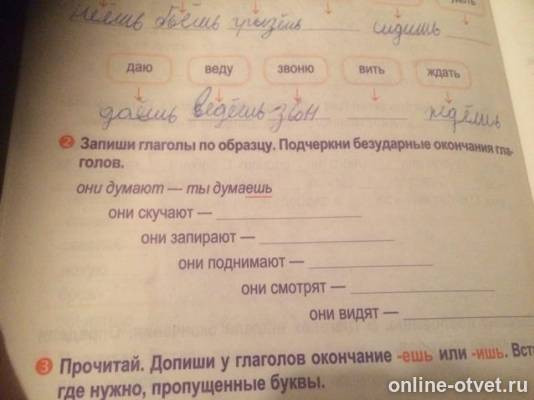 даёшь сидишь
даю веду звоню вить ждать
даёшь ведёшь звон ждёшь
2 Запиши глаголы по образцу. Подчеркни безударные окончания глаголов.
они думают — ты думаешь
они скучают —
они запирают —
они поднимают —
они смотрят —
они видят —
3 Прочитай. Допиши у глаголов окончание -ешь или -ишь. Вст
где нужно, пропущенные буквы.
online-otvet.ru